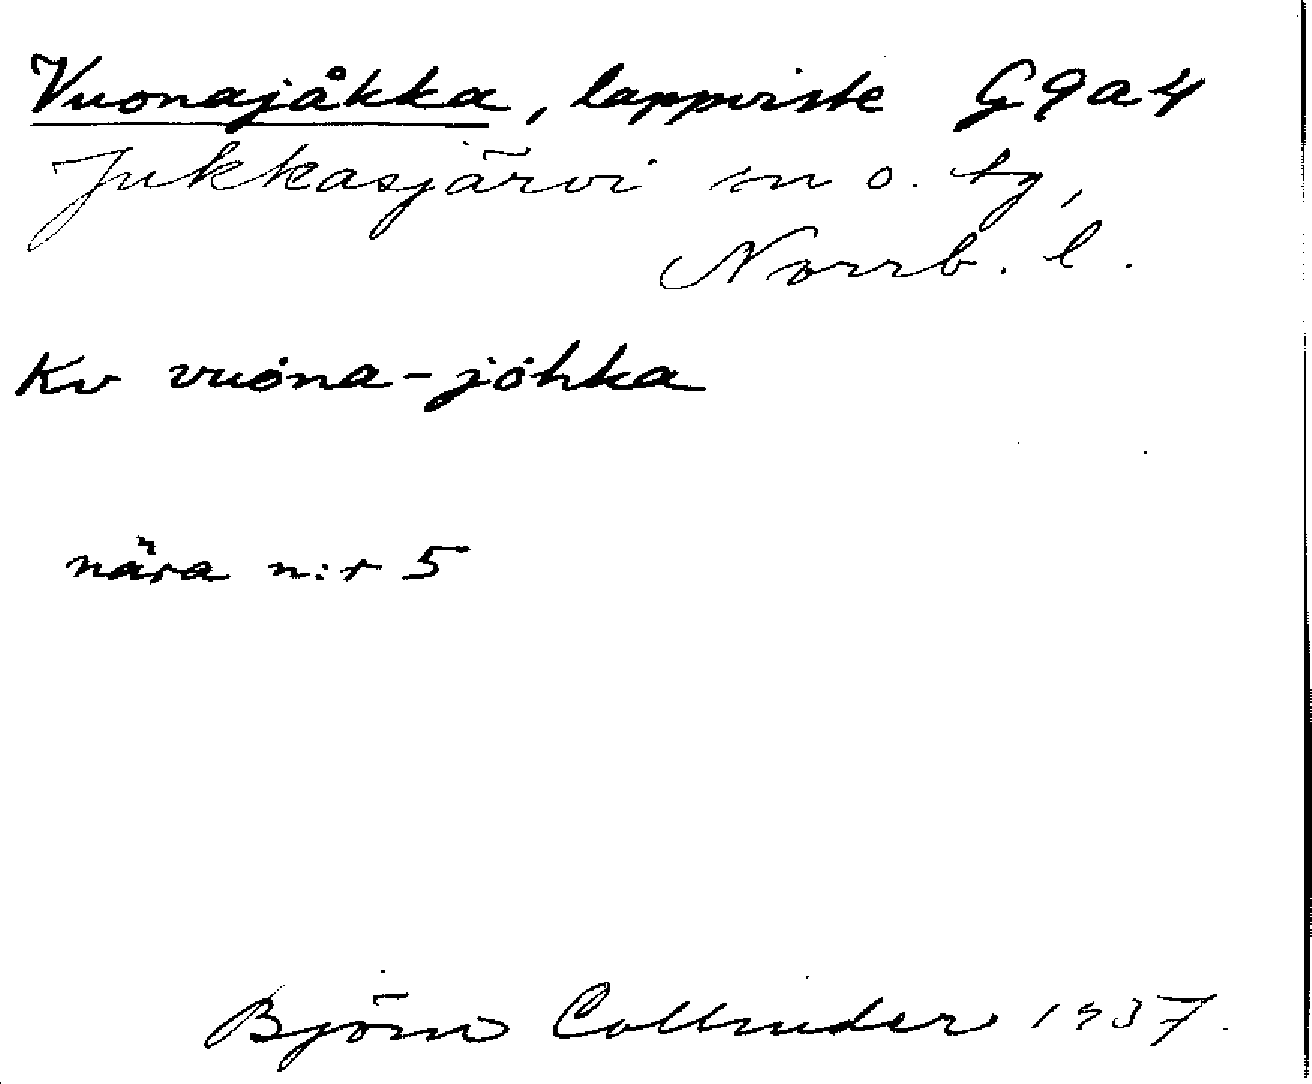 Vuonajåkka, lappviste G9a4
Jukkasjärvi sn o. tg,
Norrb. l.
Kv vuȯna-jȯhka
nära n:r 5
Björn Collinder 1937.